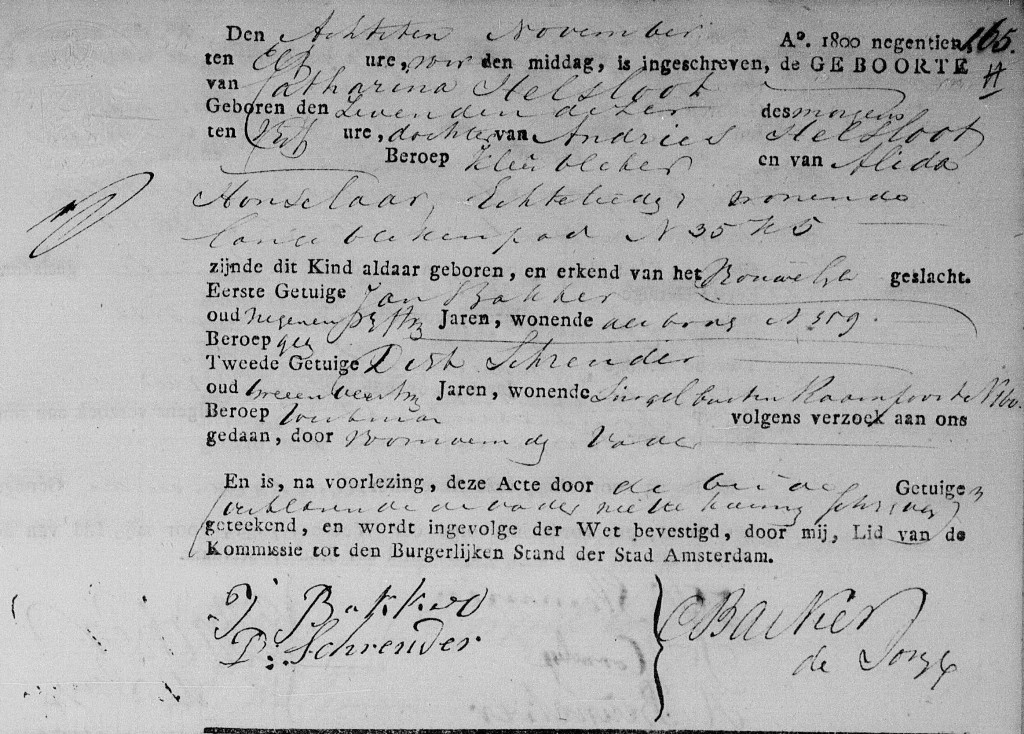 Den Achtsten November Aº. 1800 negentien 165.
ten Elf ure, voor den middag, is ingeschreven, de GEBOORTE
van Catharina Helsloot
Geboren den Zevenden dezer des morgens
ten ure, dochter van Andries Helsloot
Beroep kleerbleker en van Alida
Honselaar, Echtelieden wonende
lange blekenpad N 35 K 5
zijnde dit Kind aldaar geboren, en erkend van het Vrouwelijk geslacht.
Eerste Getuige Jan Bakker
oud negenenvyftig Jaren, wonende N 359.
Beroep geen
Tweede Getuige Dirk Schreuder
oud tweeenveertig Jaren, wonende Singel buiten Raampoort N 160.
Beroep volgens verzoek aan ons
gedaan, door voornoemde Vader
En is, na voorlezing, deze Acte door de beide Getuigen
verklarende de vader niet te kunnen schrijven
geteekend, en wordt ingevolge der Wet bevestigd, door mij, Lid van de
Kommissie tot den Burgerlijken Stand der Stad Amsterdam.
J Bakker
D: Schreuder
CBakker
de Jonge